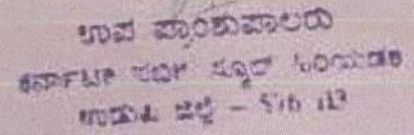 ಉಪ ಪ್ರಾಂಶುಪಾಲರು
ಕರ್ನಾಟಕ ಪಬ್ಲಿಕ್ ಸ್ಕೂಲ್ ಹಿರಿಯಡಕ
ಉಡುಪಿ ಜಿಲ್ಲೆ - 576 113